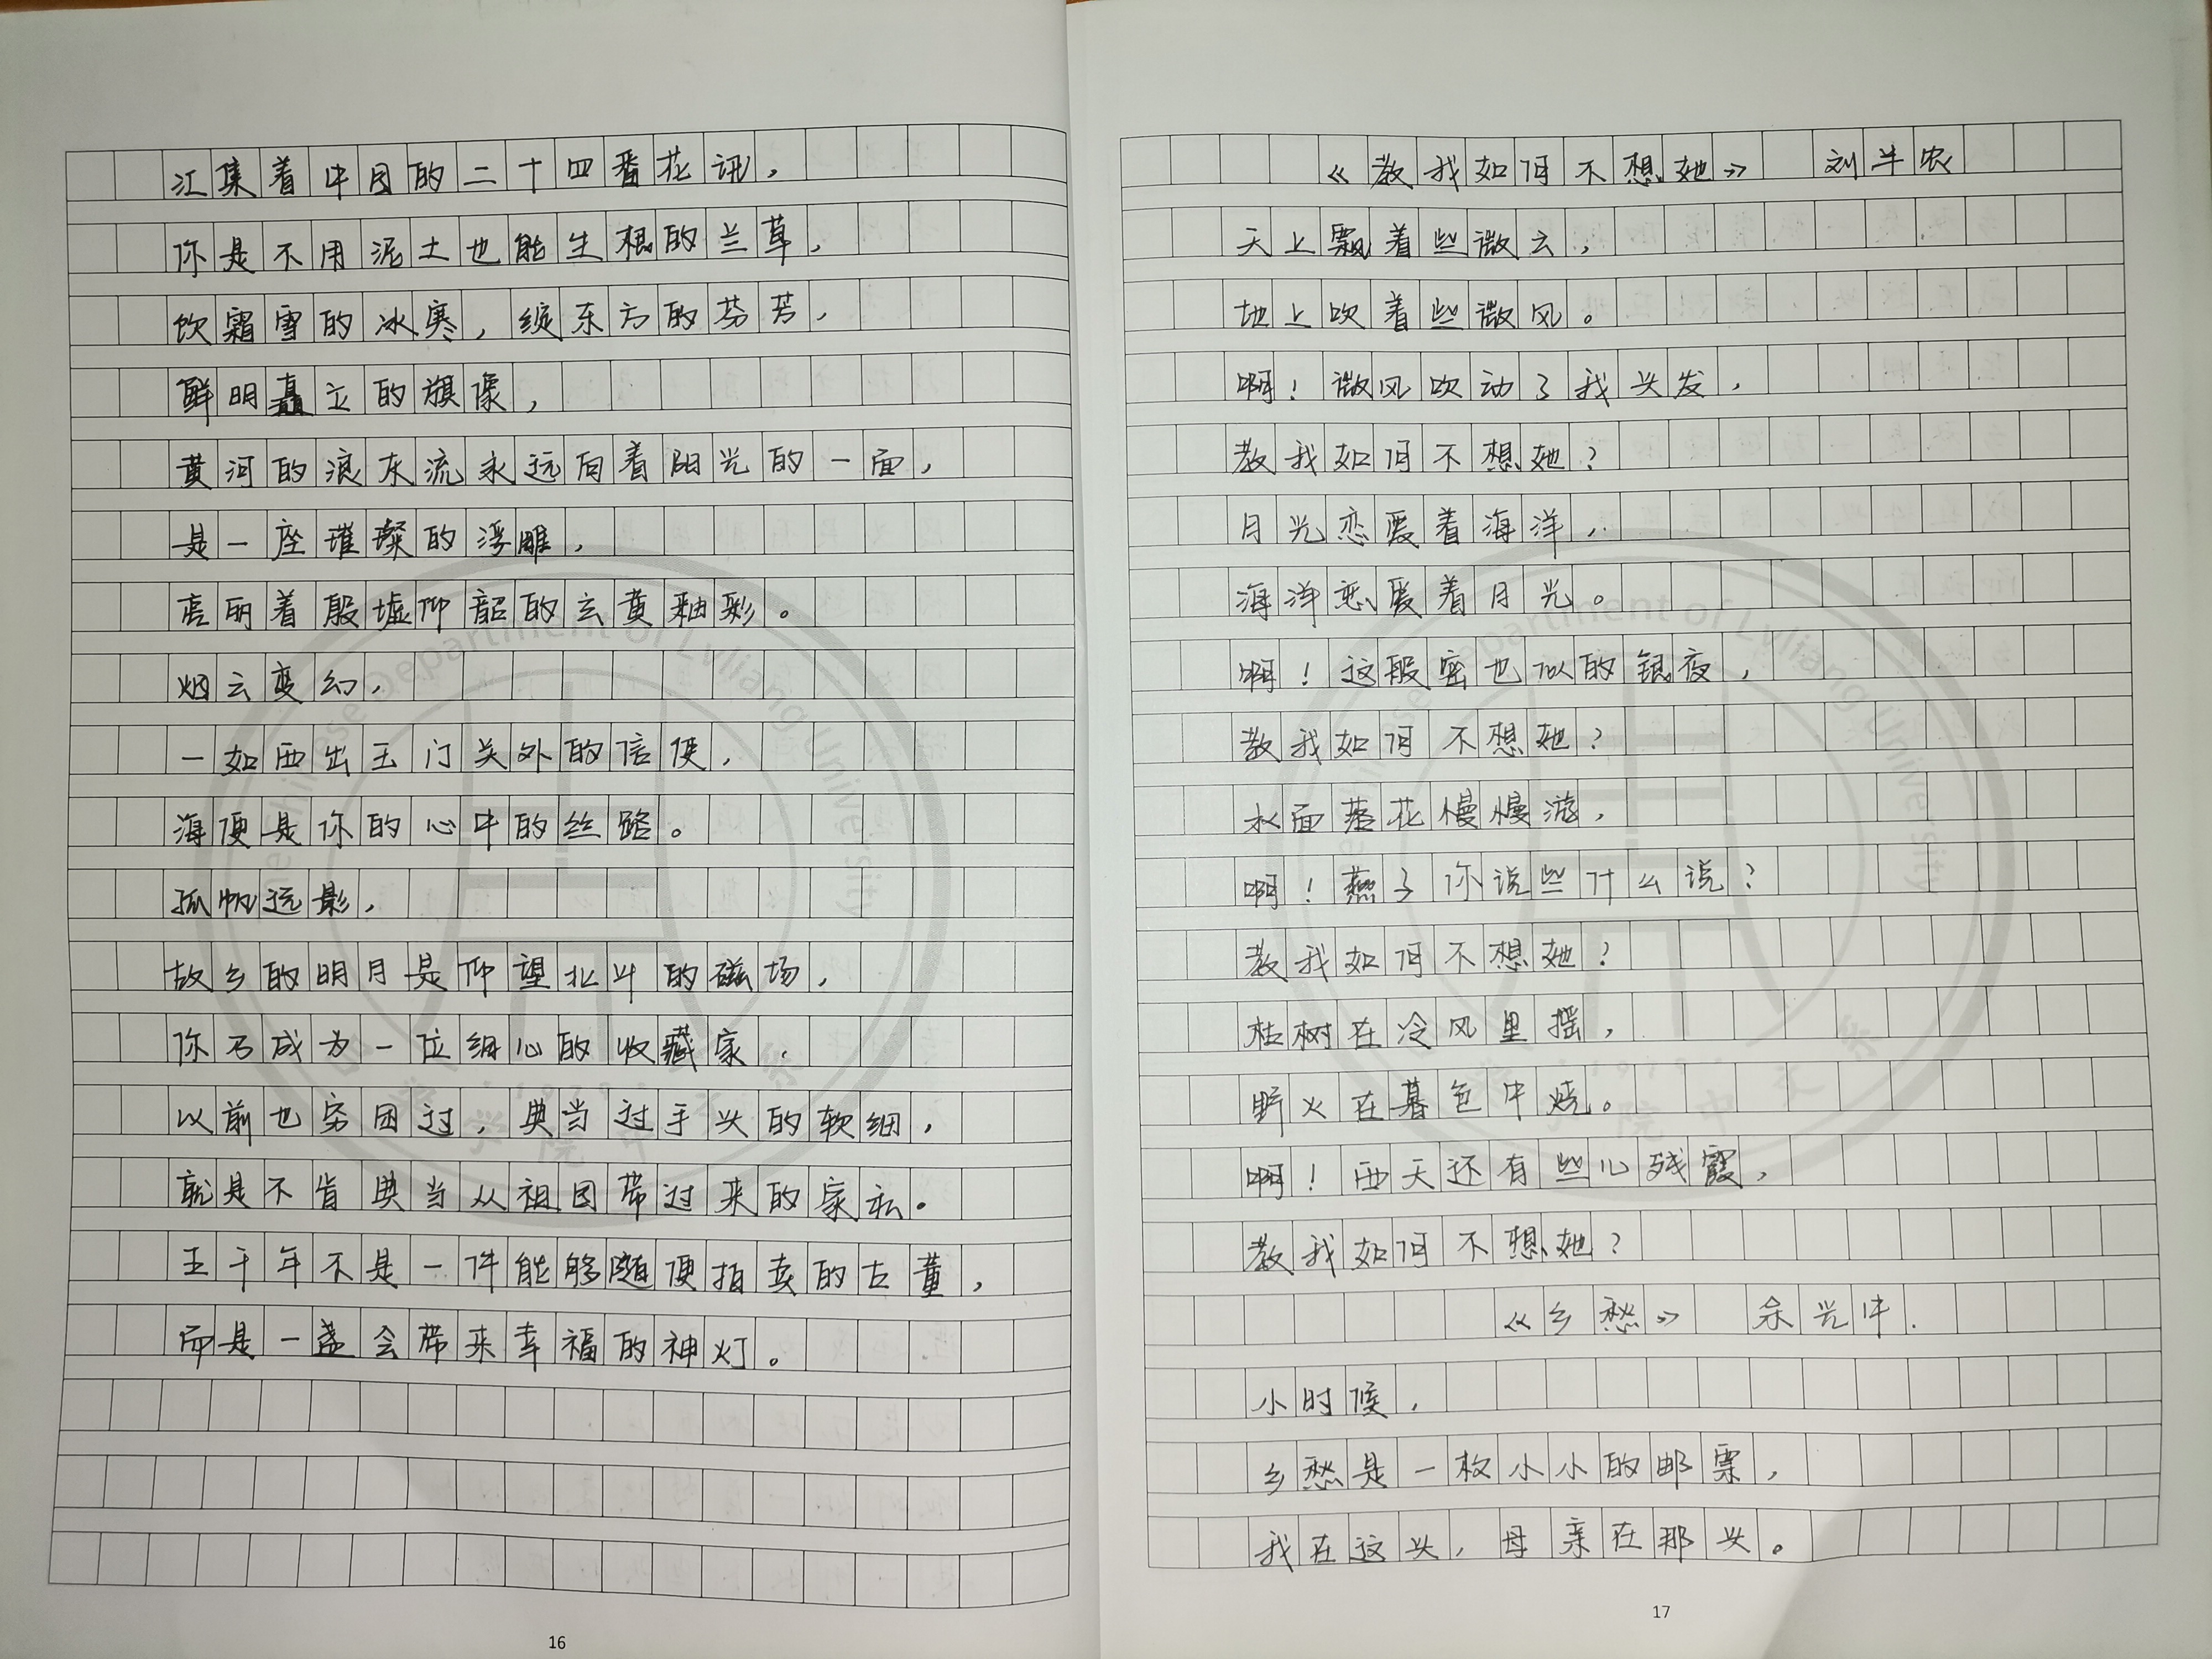 江集着中国的二十四番花讯，
你是不用泥土也能生根的兰草，
饮霜雪的冰寒，绽东方的芬芳，
鲜明矗立的旗像，
黄河的浪灰流永远向着阳光的一面，
是一座璀璨的浮雕，
亮丽着殷墟仰韶的玄黄釉彩。
烟云变幻，
一如西出玉门关外的信使，
海便是你的心中的丝路。
孤帆远影，
故乡的明月是仰望北斗的磁场，
你不成为一位细心的收藏家，
以前也穷困过，典当过手头的软细，
就是不肯典当从祖国带过来的家私。
五千年不是一件能够随便拍卖的古董，
而是一盏会带来幸福的神灯。
16
《教我如何不想她》 刘半农
天上飘着些微云，
地上吹着些微风。
啊！微风吹动了我头发，
教我如何不想她？
月光恋爱着海洋，
海洋恋爱着月光。
啊！这般密也似的银夜，
教我如何不想她？
水面落花慢慢游，
啊！燕子你说些什么说？
教我如何不想她？
枯树在冷风里摇，
野火在暮色中烧。
啊！西天还有些儿残霞，
教我如何不想她？
《乡愁》 余光中.
小时候，
乡愁是一枚小小的邮票，
我在这头，母亲在那头。
17
The Chinese Department of Lvliang University